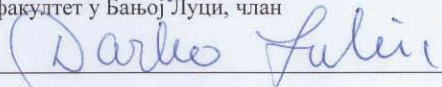 факултет у Бањој Луци, члан
Darko